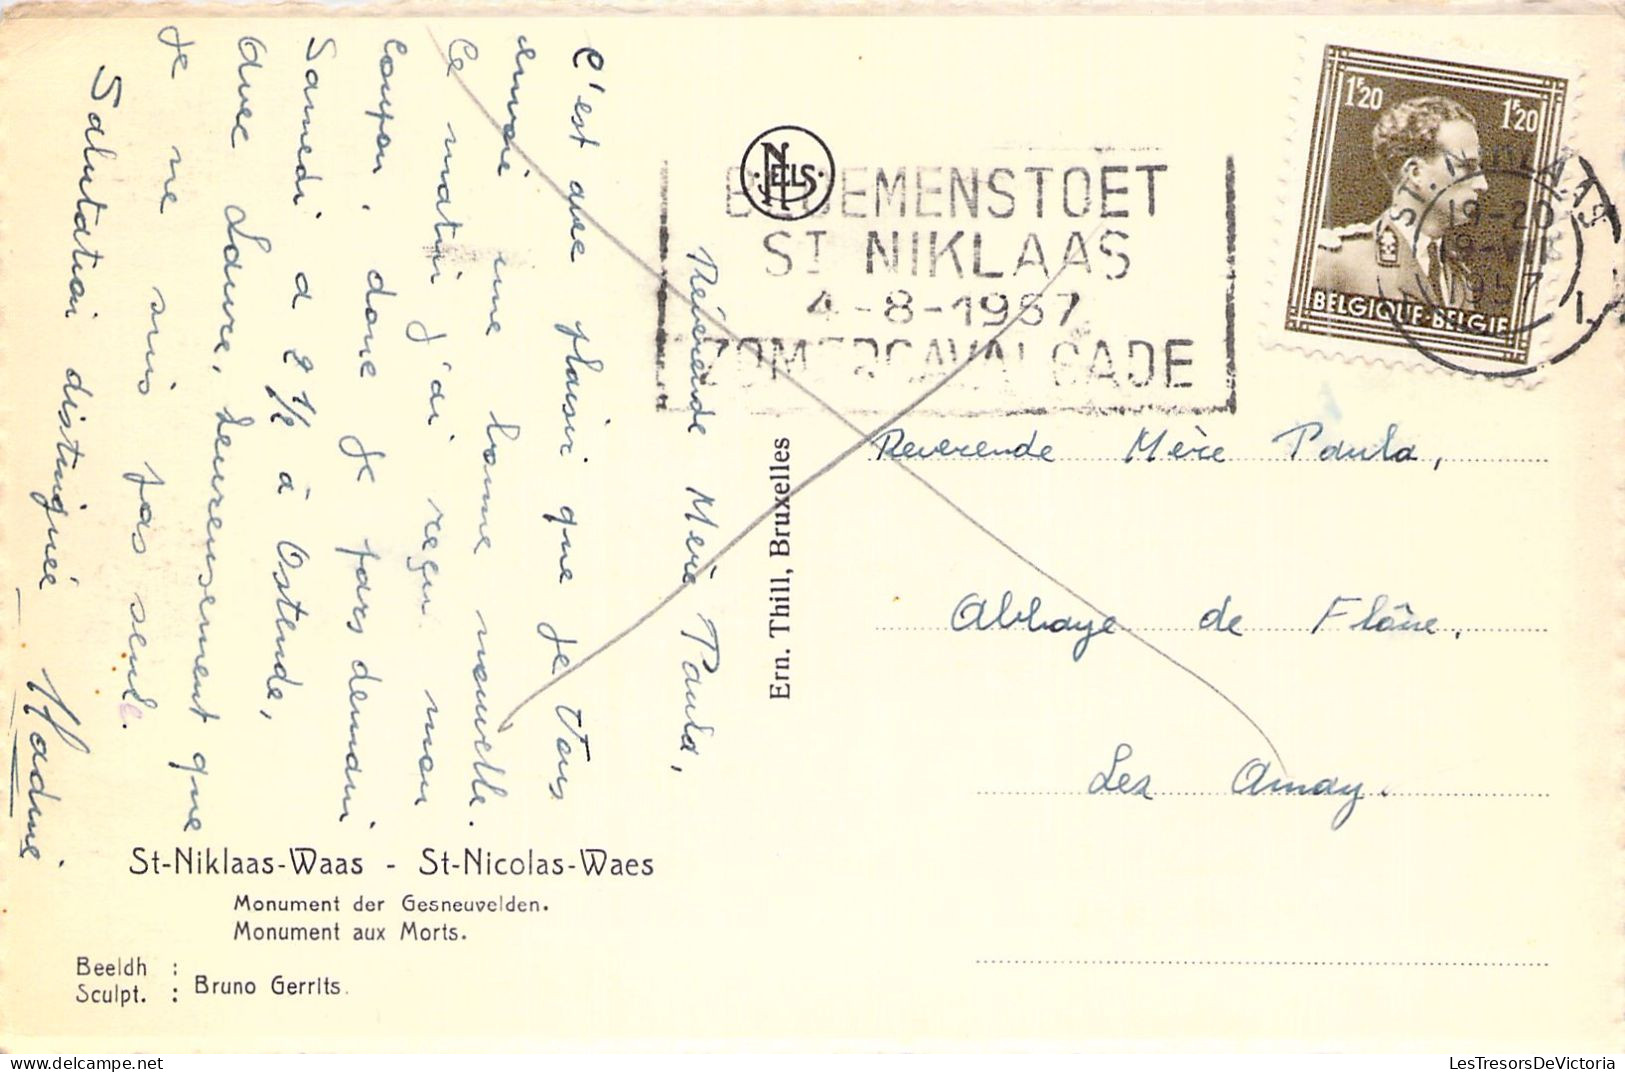 Révérende Mère Paula,
C'est avec plaisir que je Vous
envoi une bonne nouvelle.
Ce matin j'ai reçu mon
coupon, donc je pars demain
Samedi a 2 1/2 à Ostende,
avec Laure, heureusement que
je ne suis pas seule.
Salutation distinguée
St-Niklaas-Waas - St-Nicolas-Waes
Monument der Gesneuvelden.
Monument aux Morts.
Beeldh :
Sculpt. : Bruno Gerrits.
Ern. Thill, Bruxelles
NELS
BLOEMENSTOET
ST NIKLAAS
4-8-1957
ZOMERCAVALCADE
1F20 1F20
BELGIQUE·BELGIE
ST. NIKLAAS
19-20
1957
1.
Reverende Mère Paula,
Abbaye de Flône,
Lez Amay.
LesTresorsDeVictoria